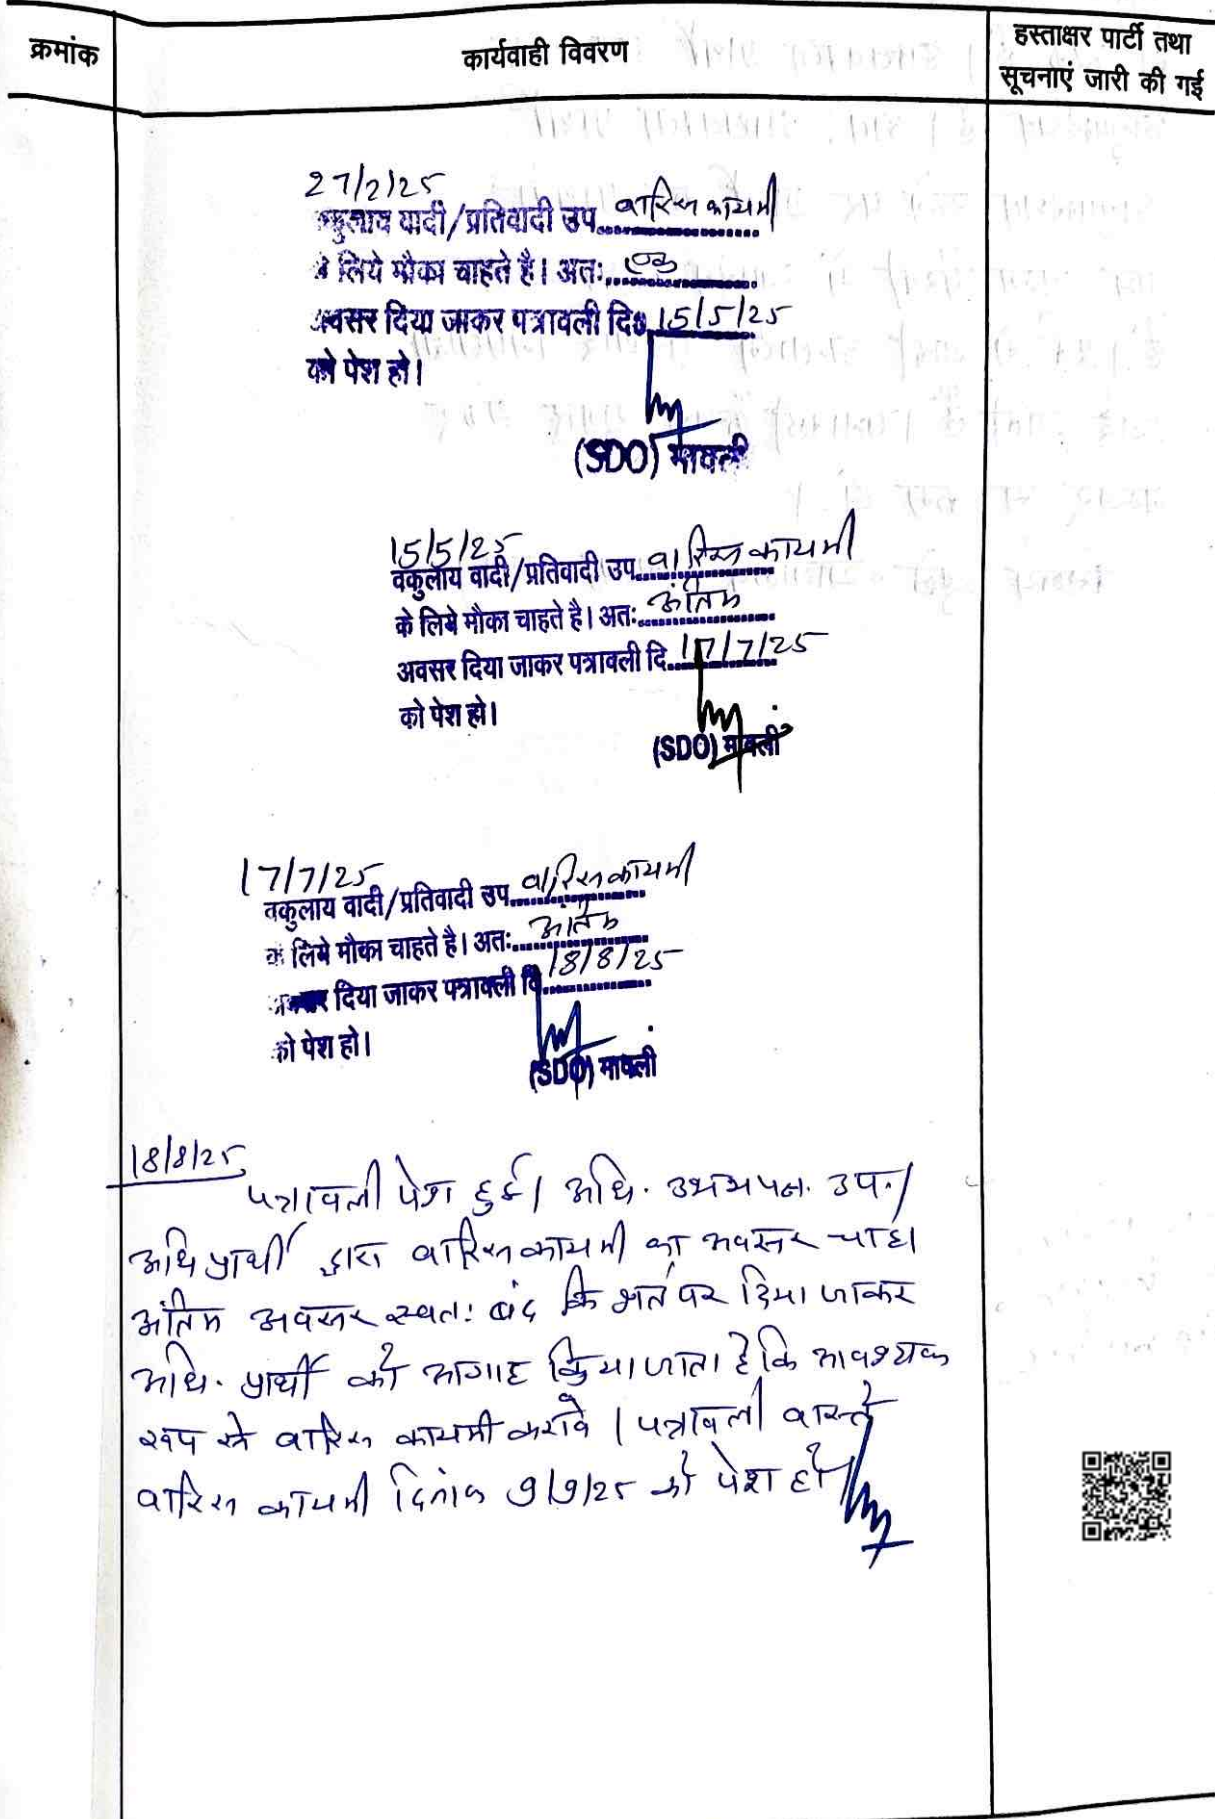 क्रमांक
कार्यवाही विवरण
हस्ताक्षर पार्टी तथा
सूचनाएं जारी की गई
27/2/25
वकुलाय वादी/प्रतिवादी उप. वारिस कायमी
के लिये मौका चाहते है। अतः एक
अवसर दिया जाकर पत्रावली दि. 15/5/25
को पेश हो।
(SDO) मावली
15/5/25
वकुलाय वादी/प्रतिवादी उप. वारिस कायमी
के लिये मौका चाहते है। अतः अंतिम
अवसर दिया जाकर पत्रावली दि. 17/7/25
को पेश हो।
(SDO) मावली
17/7/25
वकुलाय वादी/प्रतिवादी उप. वारिस कायमी
के लिये मौका चाहते है। अतः अंतिम
अवसर दिया जाकर पत्रावली दि. 18/8/25
को पेश हो।
(SDO) मावली
18/8/25
पत्रावली पेश हुई। अधि. उभयपक्ष. उप.।
अधि प्रार्थी द्वारा वारिस कायमी का अवसर चाहा
अंतिम अवसर स्वतः बंद कि शर्त पर दिया जाकर
अधि. प्रार्थी को आगाह किया जाता है कि आवश्यक
रूप से वारिस कायमी करावे। पत्रावली वास्ते
वारिस कायमी दिनांक 9/9/25 को पेश हो